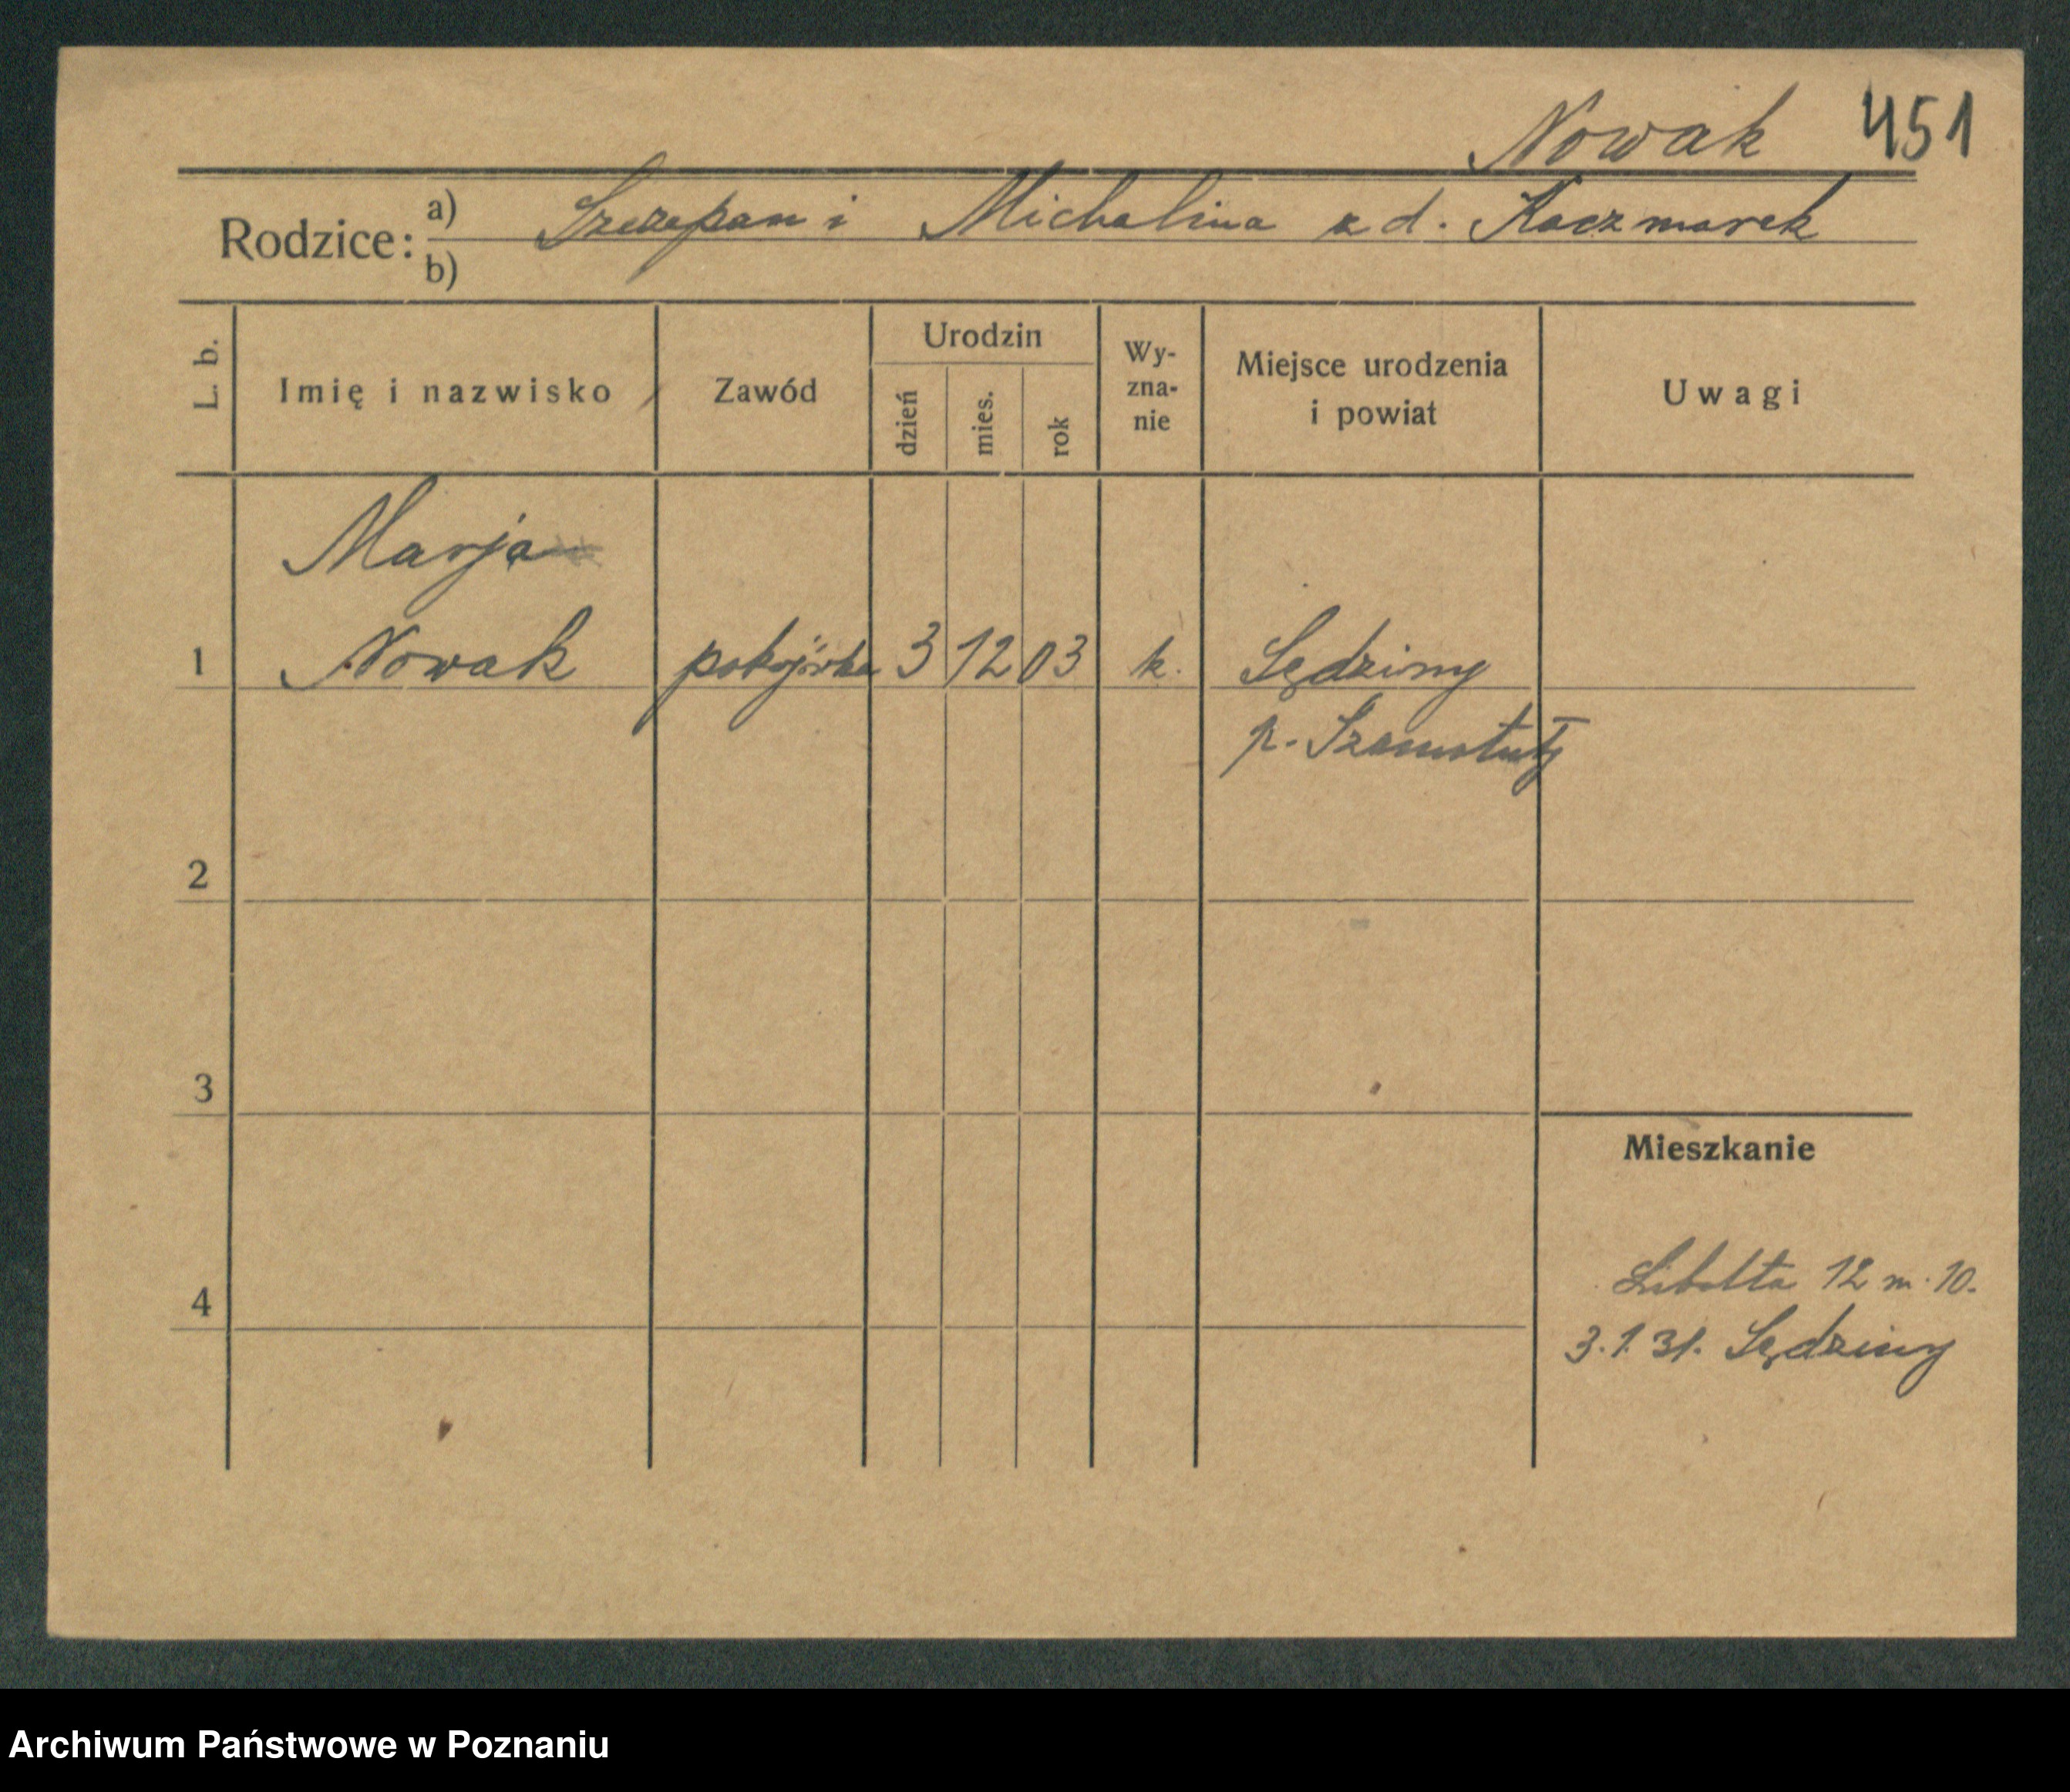 Nowak 451
Rodzice: a) Szczepan i Michalina z d. Kaczmarek
b)
L. b.
Imię i nazwisko
Zawód
Urodzin
dzień
mies.
rok
Wy-
zna-
nie
Miejsce urodzenia
i powiat
Uwagi
Marja
1 Nowak pokojówka 3 12 03 k. Sędziny
p. Szamotuły
2
3
Mieszkanie
4
Libelta 12 m. 10.
3.1.31. Sędziny
Archiwum Państwowe w Poznaniu